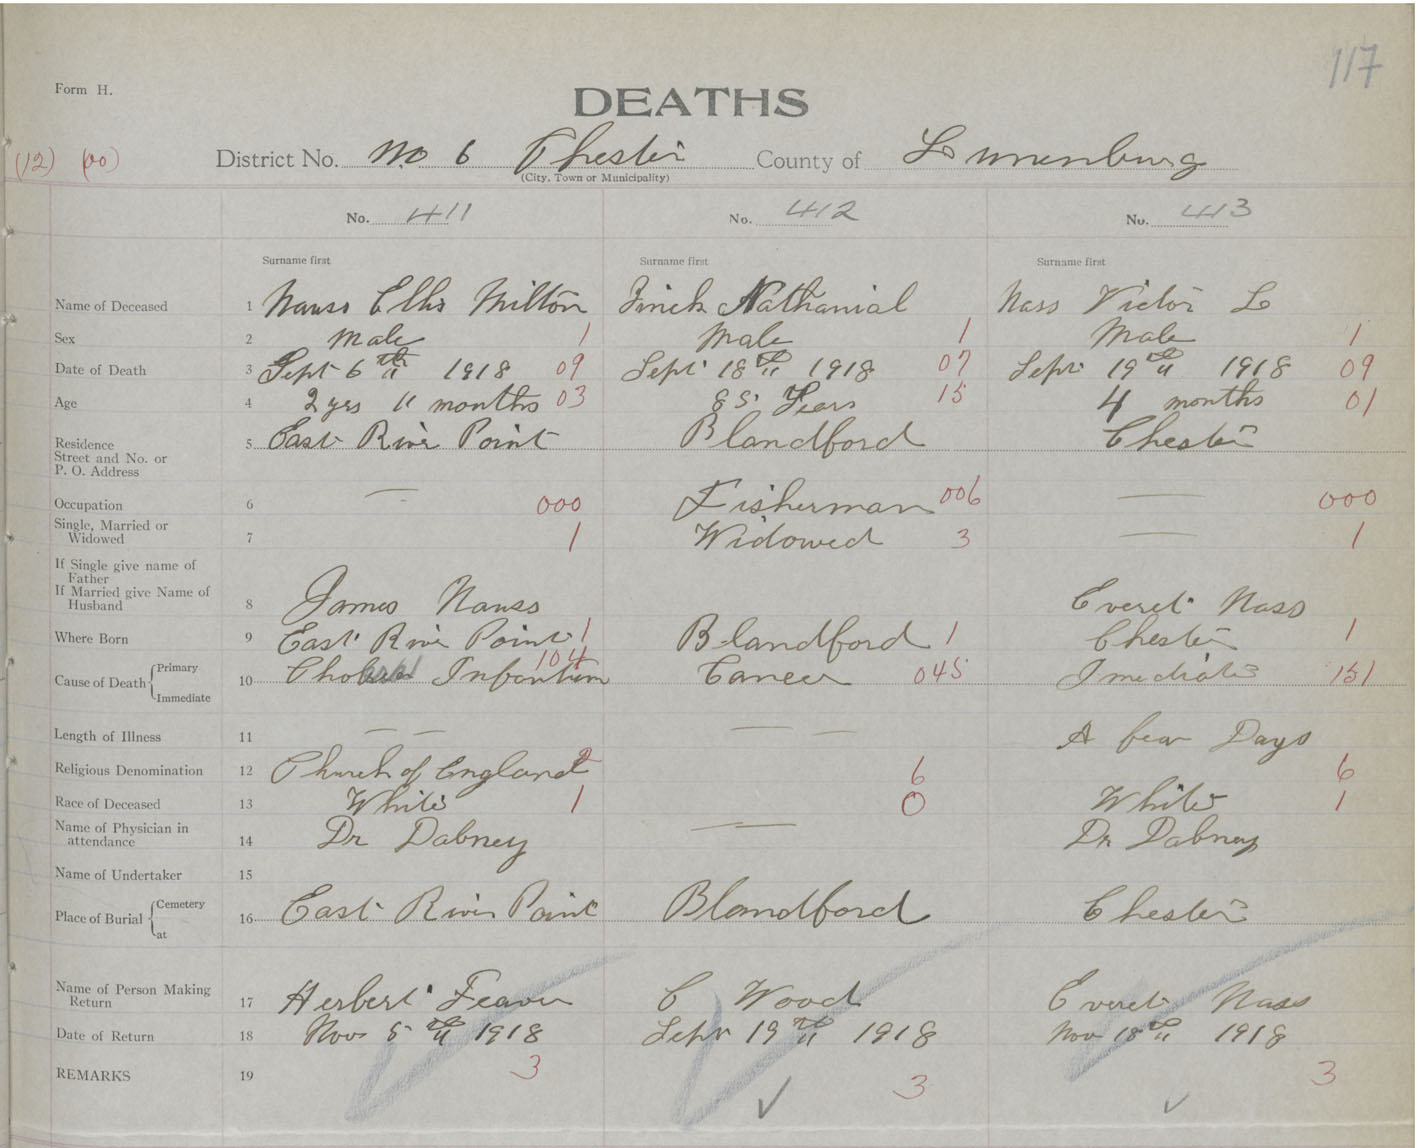 117
Form H.
DEATHS
(12) (00) District No. No 6 Chester County of Lunenburg
(City, Town or Municipality)
No. 411 No. 412 No. 413
Surname first Surname first Surname first
Name of Deceased 1 Nauss Ellis Milton Zinck Nathanial Nass Victor L
Sex 2 Male 1 Male 1 Male 1
Date of Death 3 Sept 6th 1918 09 Sept 18th 1918 07 Sept 19th 1918 09
Age 4 2 yrs 11 months 03 85 Years 15 4 months 01
Residence
Street and No. or
P. O. Address 5 East River Point Blandford Chester
Occupation 6 — 000 Fisherman 006 — 000
Single, Married or
Widowed 7 1 Widowed 3 — 1
If Single give name of
Father
If Married give Name of
Husband 8 James Nauss Everet Nass
Where Born 9 East River Point 1 Blandford 1 Chester 1
Cause of Death Primary
Immediate 10 Infantum 104 Cancer 045 Imediate 151
Length of Illness 11 — — — — A few Days
Religious Denomination 12 Church of England 2 6 6
Race of Deceased 13 White 1 0 White 1
Name of Physician in
attendance 14 Dr Dabney — Dr Dabney
Name of Undertaker 15
Place of Burial Cemetery
at 16 East River Point Blandford Chester
Name of Person Making
Return 17 Herbert Feaver C Wood Everet Nass
Date of Return 18 Nov 5th 1918 Sept 19th 1918 Nov 18th 1918
REMARKS 19 3 3 3